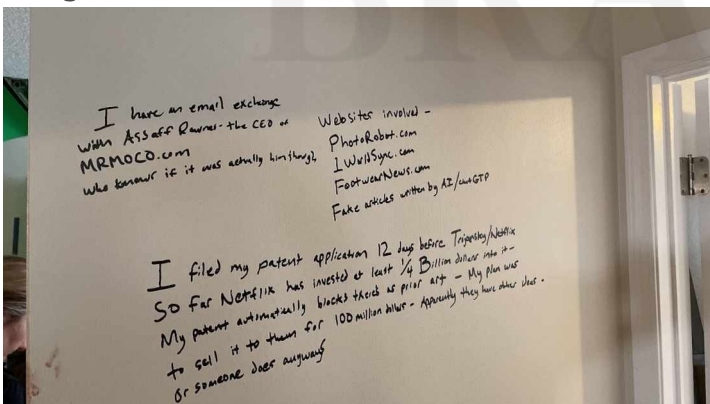 I have an email exchange
with Assaff Rawner - the CEO of
MRMOCO.com
who knows if it was actually him though,
Websites involved -
PhotoRobot.com
1WorldSync.com
FootwearNews.com
Fake articles written by AI/chatGTP
I filed my patent application 12 days before Trojansky/Netflix
So far Netflix has invested at least 1/4 Billion dollars into it -
My patent automatically blocks theirs as prior art - My plan was
to sell it to them for 100 million dollars - Apparently they have other ideas -
Or someone does anyways